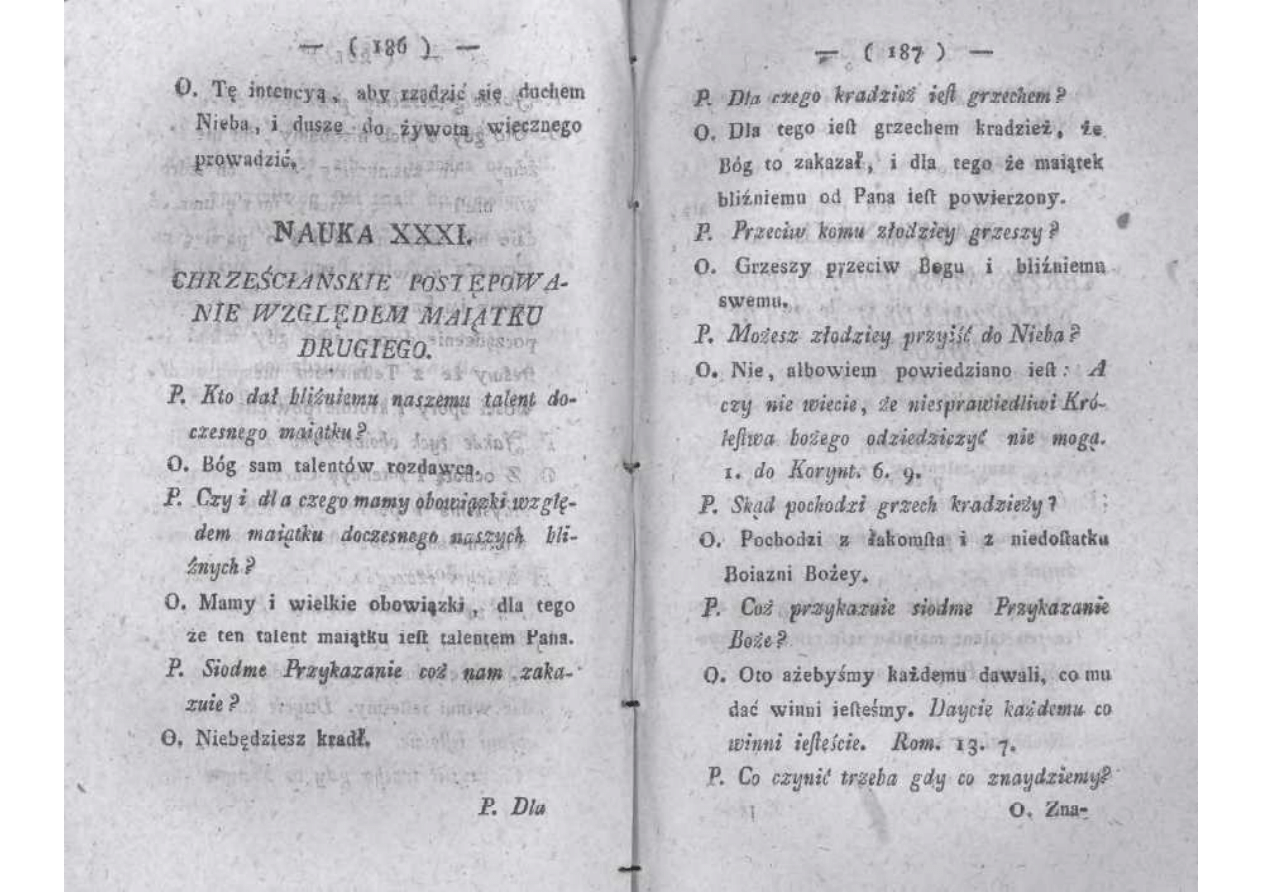 — ( 186 ) —
O. Tę intencyą, aby rządzić się duchem
Nieba, i dusze do żywota wiecznego
prowadzić.
NAUKA XXXI.
CHRZEŚCIAŃSKIE POSTĘPOWA-
NIE WZGLĘDEM MAIĄTKU
DRUGIEGO.
P. Kto dał bliźniemu naszemu talent do-
czesnego maiątku?
O. Bóg sam talentów rozdawca.
P. Czy i dla czego mamy obowiązki wzglę-
dem maiątku doczesnego naszych bli-
źnych?
O. Mamy i wielkie obowiązki, dla tego
że ten talent maiątku ieſt talentem Pana.
P. Siodme Przykazanie coż nam zaka-
zuie?
O. Niebędziesz kradł.
P. Dla
— ( 187 ) —
P. Dla czego kradzież ieſt grzechem?
O. Dla tego ieſt grzechem kradzież, że
Bóg to zakazał, i dla tego że maiątek
bliźniemu od Pana ieſt powierzony.
P. Przeciw komu złodziey grzeszy?
O. Grzeszy przeciw Bogu i bliźniemu
swemu.
P. Możesz złodziey przyiść do Nieba?
O. Nie, albowiem powiedziano ieſt: A
czy nie wiecie, że niesprawiedliwi Kró-
leſtwa bożego odziedziczyć nie mogą.
1. do Korynt. 6. 9.
P. Skąd pochodzi grzech kradzieży?
O. Pochodzi z łakomſta i z niedoſtatku
Boiazni Bożey.
P. Coż przykazuie siodme Przykazanie
Boże?
O. Oto ażebyśmy każdemu dawali, co mu
dać winni ieſteśmy. Daycie każdemu co
winni ieſteście. Rom. 13. 7.
P. Co czynić trzeba gdy co znaydziemy?
O. Zna-